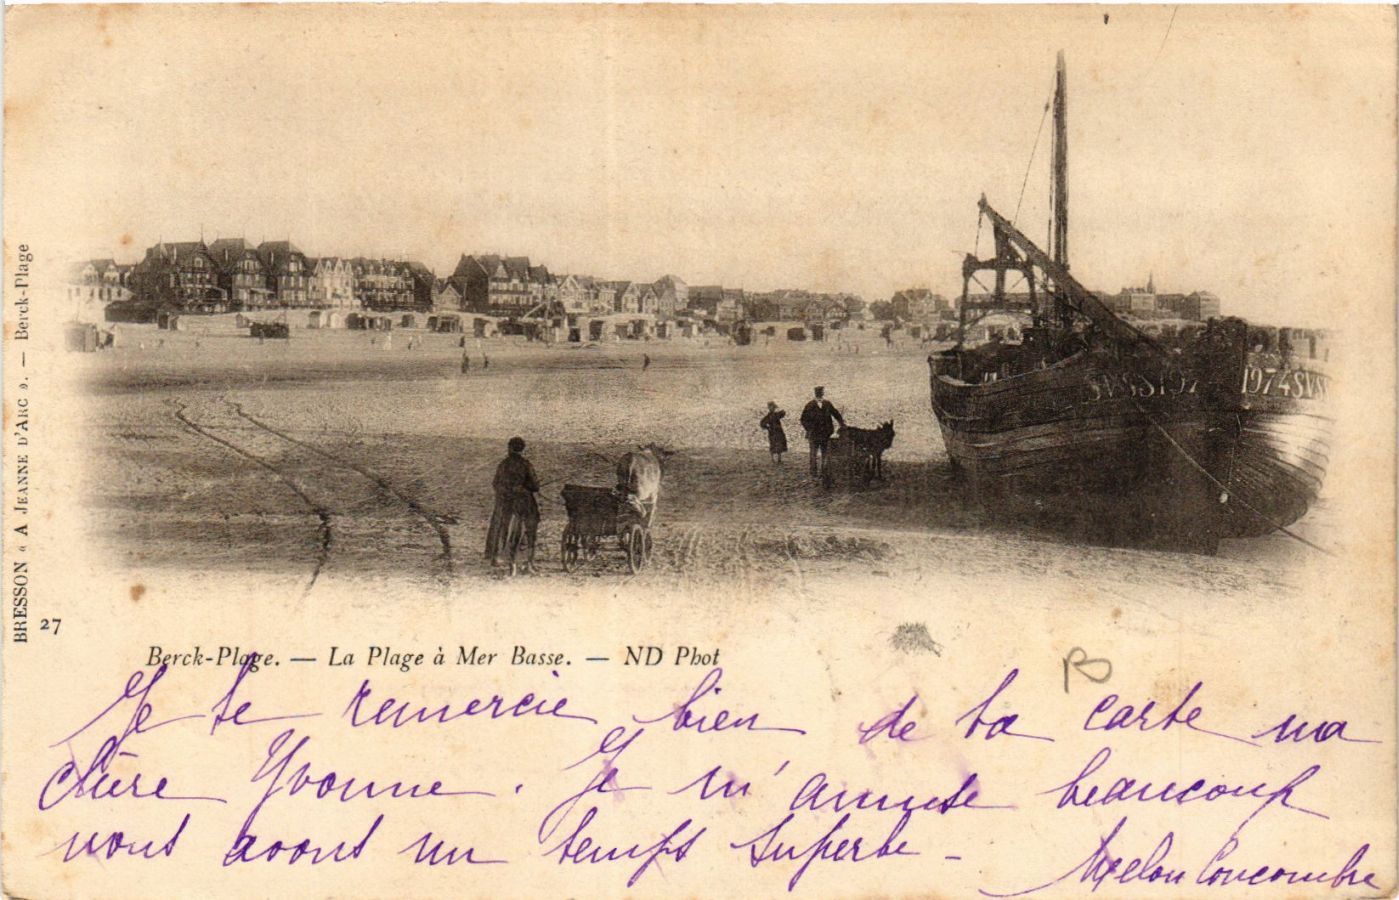 BRESSON « A JEANNE D'ARC ». — Berck-Plage
SVSS1974
1974SVS
27
Berck-Plage. — La Plage à Mer Basse. — ND Phot
Je te remercie bien de ta carte ma
chère Yvonne. Je m'amuse beaucoup
nous avons un temps superbe —
Melon Concombre